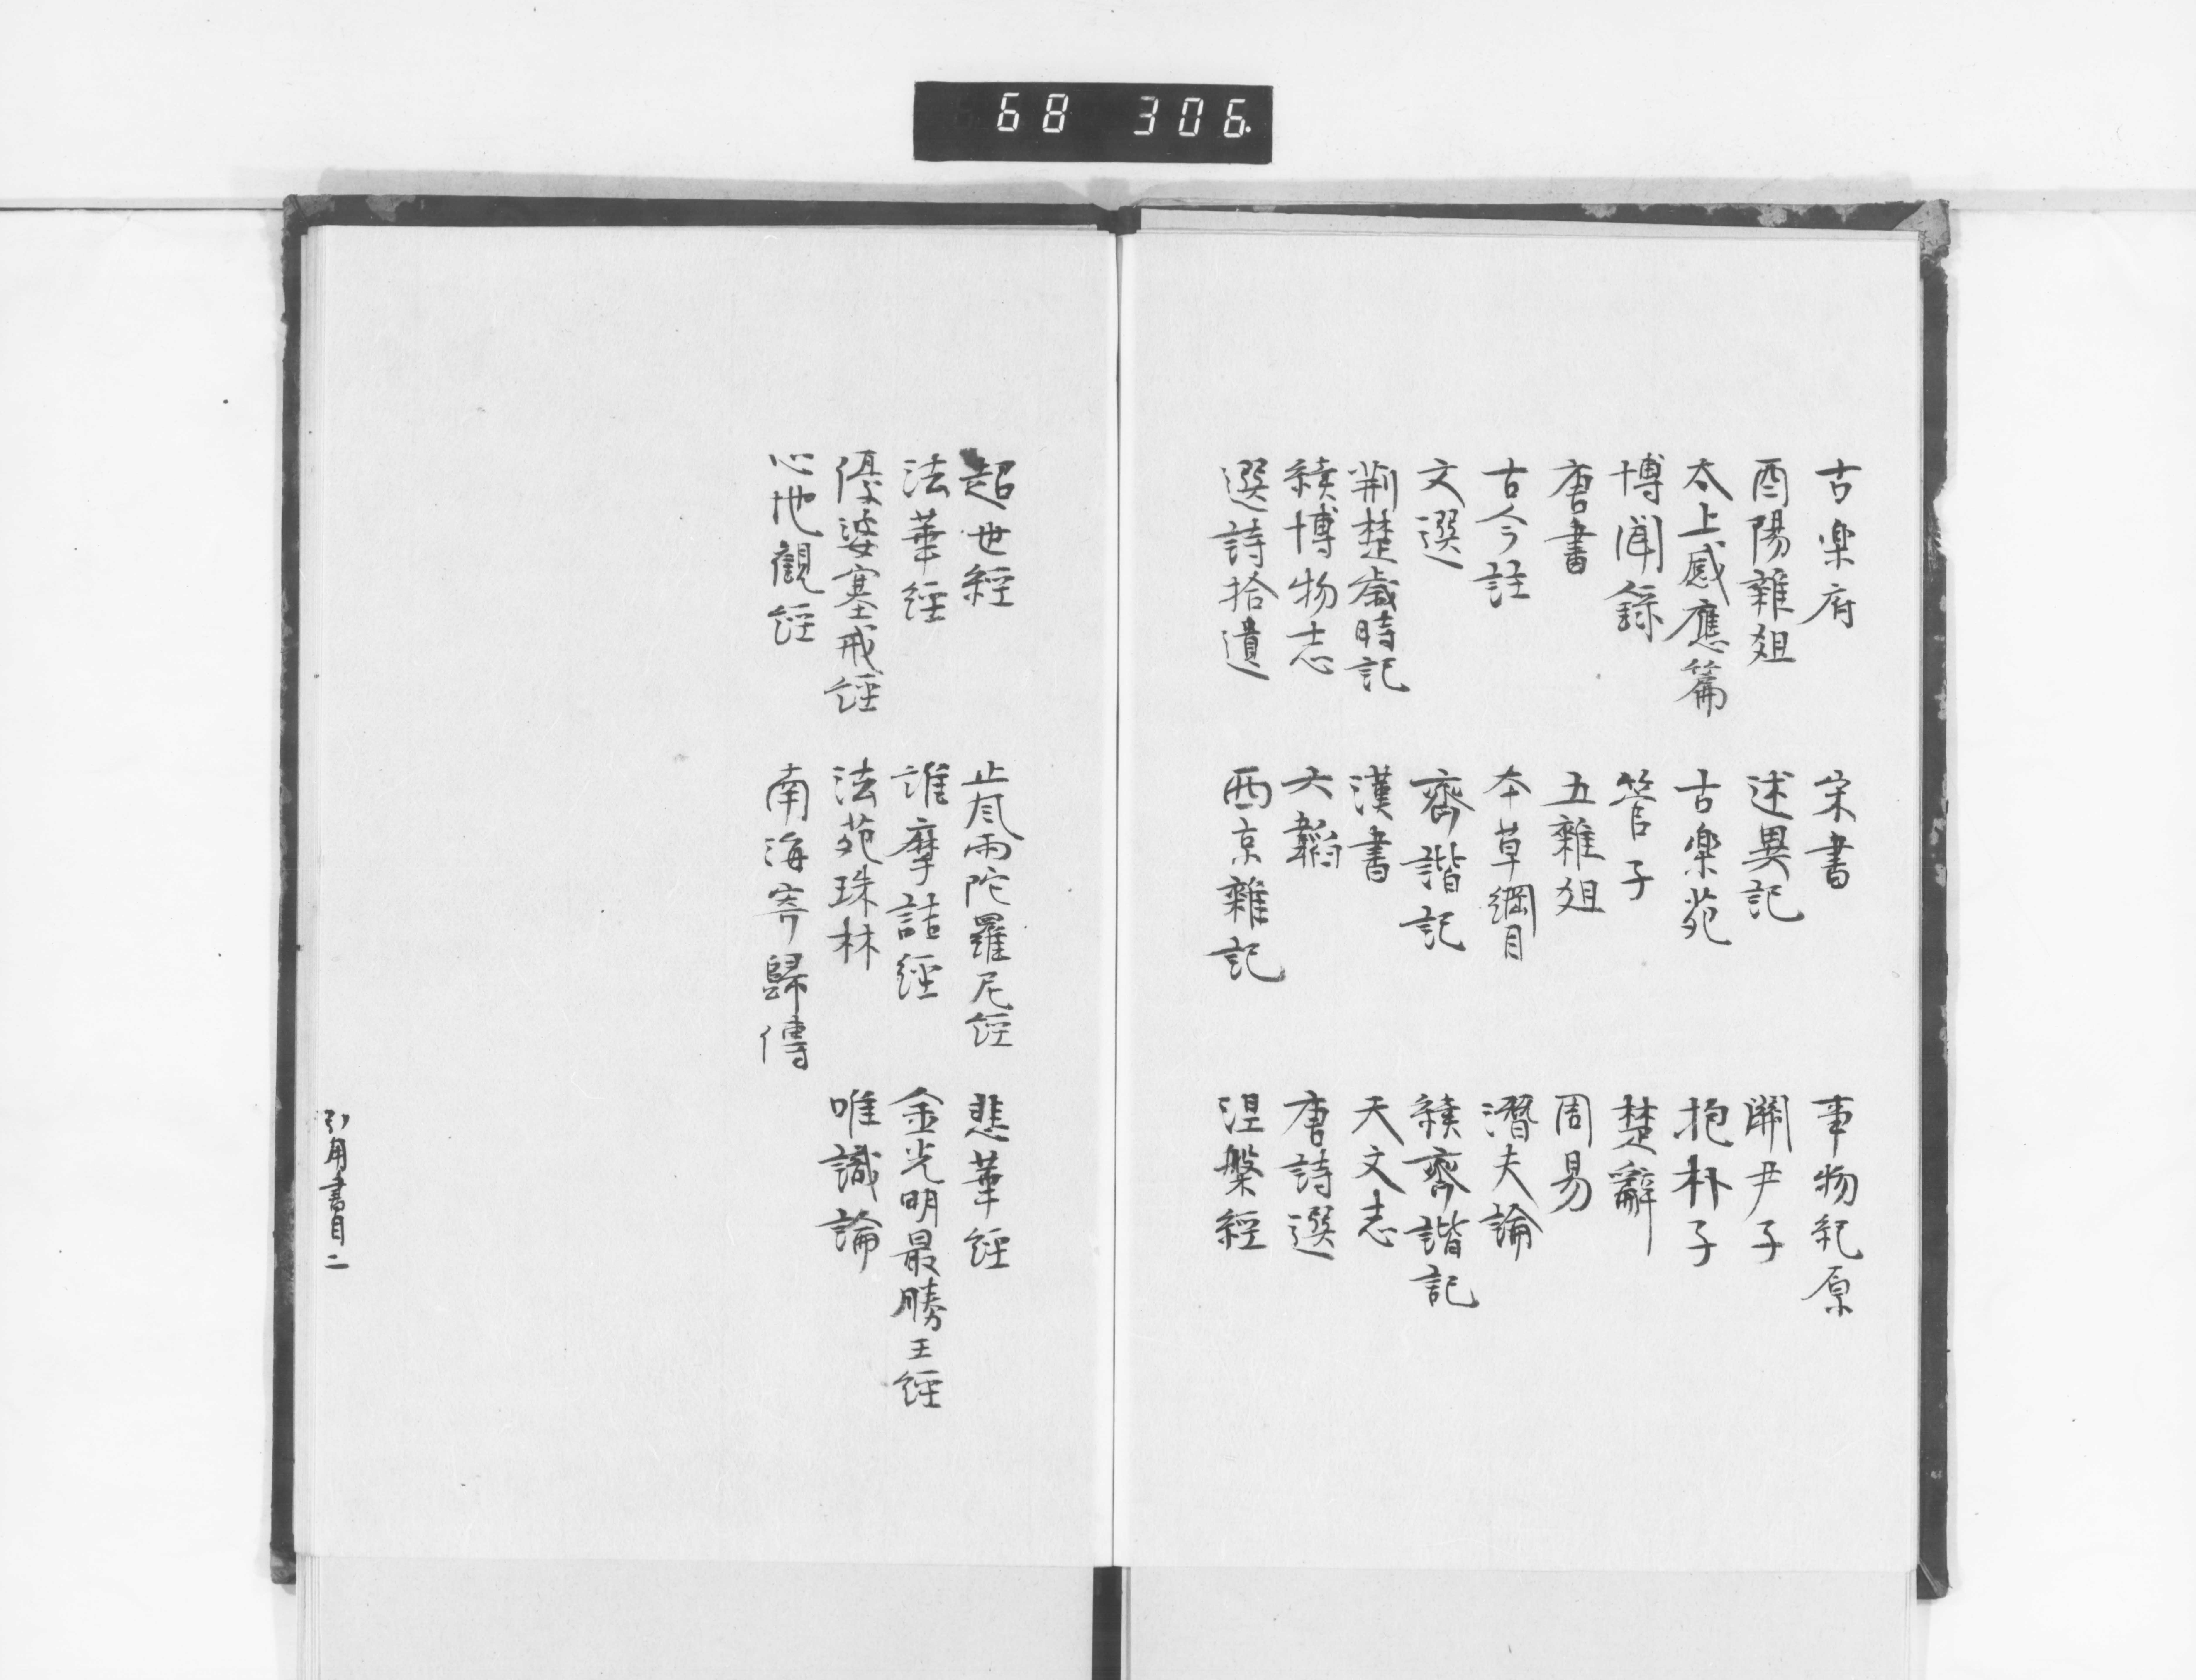 68 306.
古樂府 宋書 事物紀原
酉陽雜爼 述異記 關尹子
太上感應篇 古樂苑 抱朴子
博聞錄 管子 楚辭
唐書 五雜爼 周易
古今註 本草綱目 潛夫論
文選 齊諧記 續齊諧記
荊楚歲時記 漢書 天文志
續博物志 六韜 唐詩選
選詩拾遺 西京雜記 涅槃經
超世經 止風雨陀羅尼經 悲華經
法華經 維摩詰經 金光明最勝王經
優婆塞戒經 法苑珠林 唯識論
心地觀經 南海寄歸傳
引用書目二